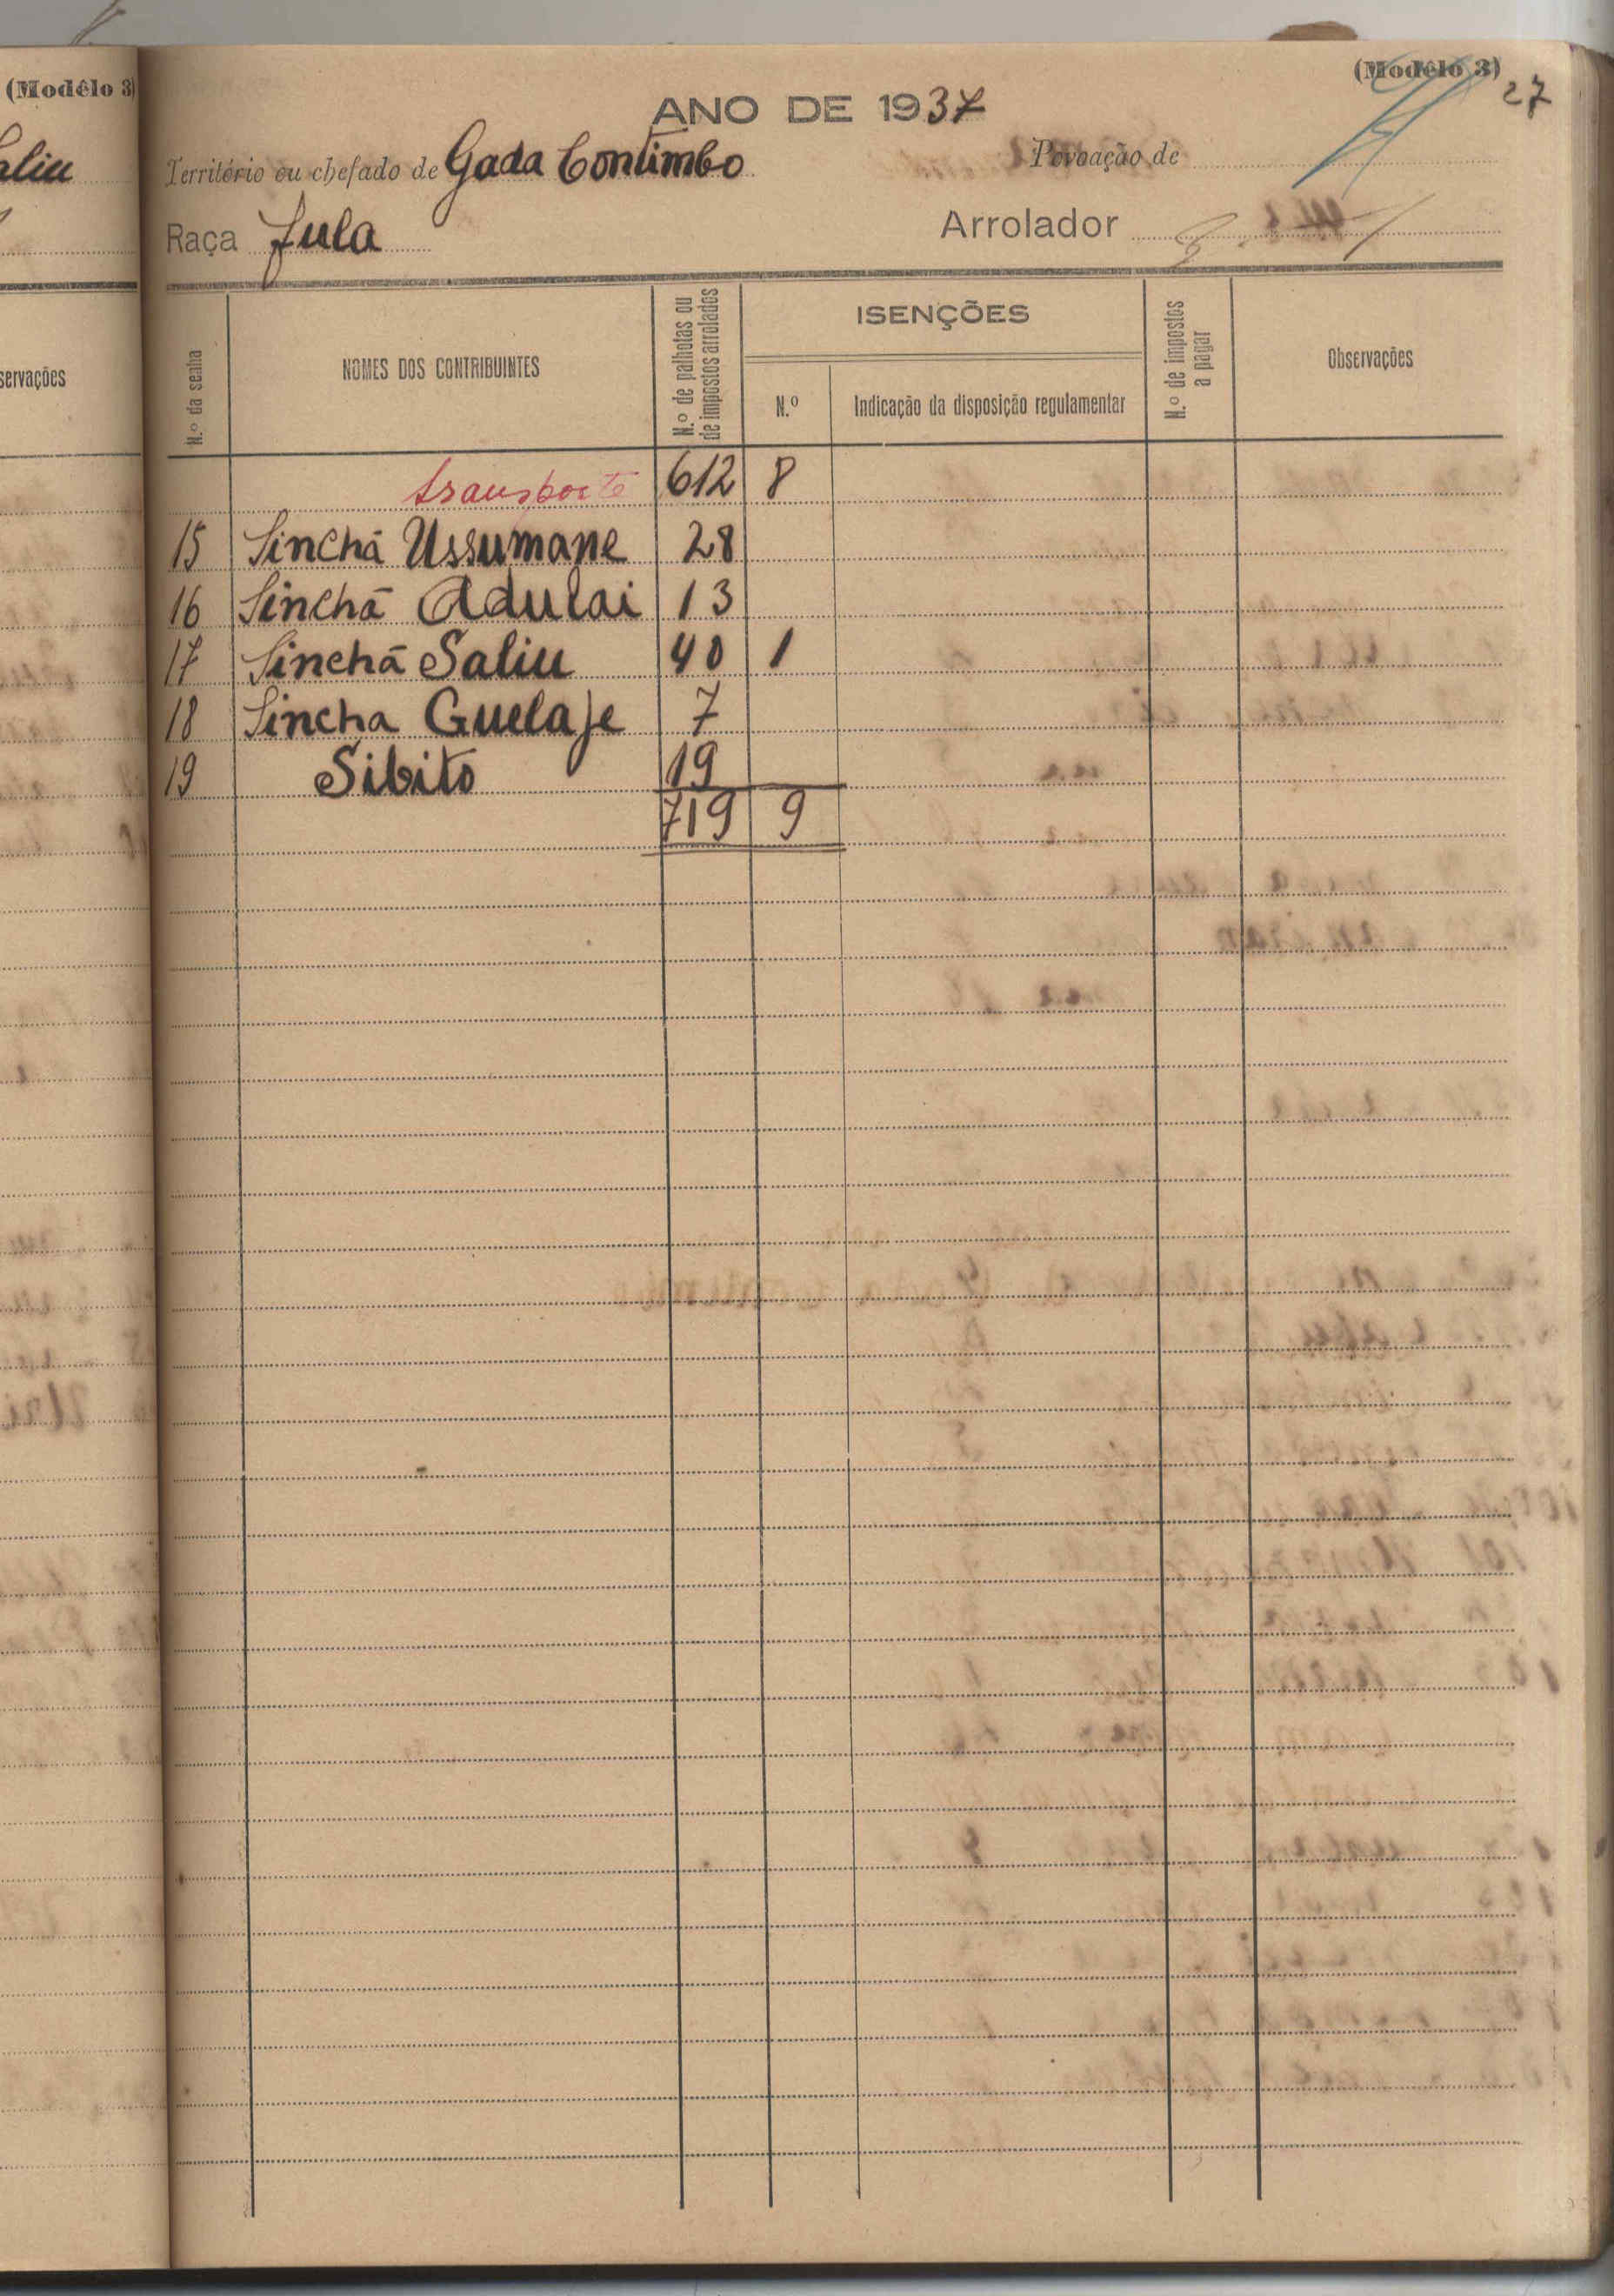 (Modêlo 3)
(Modêlo 3)
27
ANO DE 1937
Território ou chefado de Gada Contimbo
Povoação de
Raça Fula
Arrolador
servações
N.º da senha
NOMES DOS CONTRIBUINTES
N.º de palhotas ou de impostos arrolados
ISENÇÕES
N.º
Indicação da disposição regulamentar
N.º de impostos a pagar
Observações
transporte 612 8
15 Sinchã Ussumane 28
16 Sinchã Adulai 13
17 Sinchã Saliu 40 1
18 Sincha Guelaje 7
19 Sibito 19
719 9